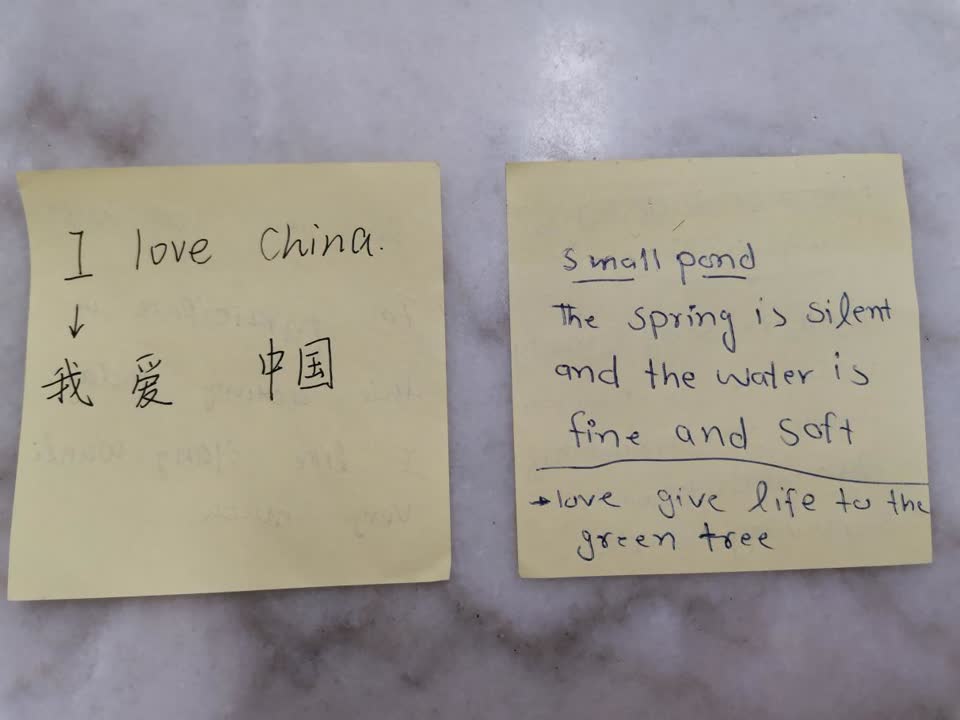 I love China.
↓
我 爱 中国
small pond
The spring is silent
and the water is
fine and soft
→love give life to the
green tree